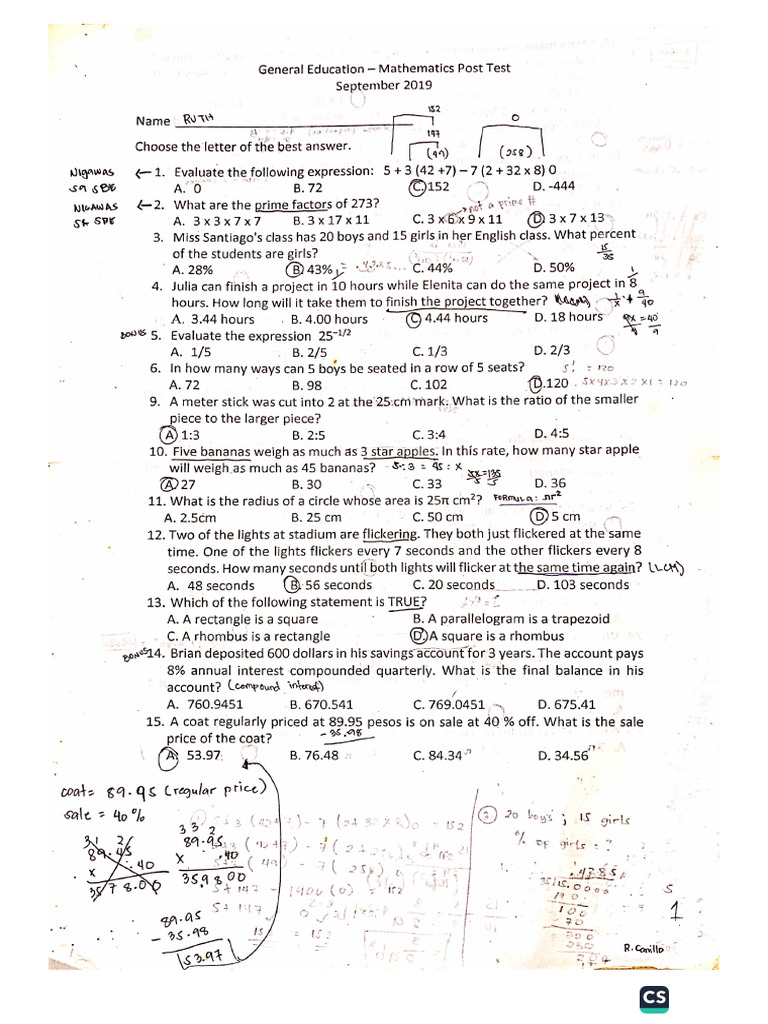 General Education – Mathematics Post Test
September 2019
Name RUTH
152
147
(49)
0
(258)
Choose the letter of the best answer.
NIGAWAS sa SPE ← 1. Evaluate the following expression: 5 + 3 (42 +7) – 7 (2 + 32 x 8) 0
A. 0 B. 72 C. 152 D. -444
NIGAWAS sa SPE ← 2. What are the prime factors of 273? not a prime #
A. 3 x 3 x 7 x 7 B. 3 x 17 x 11 C. 3 x 6 x 9 x 11 D. 3 x 7 x 13
3. Miss Santiago's class has 20 boys and 15 girls in her English class. What percent
of the students are girls? 15/35
A. 28% B. 43% C. 44% D. 50%
4. Julia can finish a project in 10 hours while Elenita can do the same project in 8
hours. How long will it take them to finish the project together?
A. 3.44 hours B. 4.00 hours C. 4.44 hours D. 18 hours
BONUS 5. Evaluate the expression 25⁻¹/²
A. 1/5 B. 2/5 C. 1/3 D. 2/3
6. In how many ways can 5 boys be seated in a row of 5 seats? 5! = 120
A. 72 B. 98 C. 102 D. 120 5x4x3x2x1 = 120
9. A meter stick was cut into 2 at the 25 cm mark. What is the ratio of the smaller
piece to the larger piece?
A 1:3 B. 2:5 C. 3:4 D. 4:5
10. Five bananas weigh as much as 3 star apples. In this rate, how many star apple
will weigh as much as 45 bananas? 5:3 = 45:x 5x=135
A. 27 B. 30 C. 33 D. 36
11. What is the radius of a circle whose area is 25π cm²? FORMULA: πr²
A. 2.5cm B. 25 cm C. 50 cm D 5 cm
12. Two of the lights at stadium are flickering. They both just flickered at the same
time. One of the lights flickers every 7 seconds and the other flickers every 8
seconds. How many seconds until both lights will flicker at the same time again? (LCM)
A. 48 seconds B. 56 seconds C. 20 seconds D. 103 seconds
13. Which of the following statement is TRUE?
A. A rectangle is a square B. A parallelogram is a trapezoid
C. A rhombus is a rectangle D. A square is a rhombus
BONUS 14. Brian deposited 600 dollars in his savings account for 3 years. The account pays
8% annual interest compounded quarterly. What is the final balance in his
account? (compound interest)
A. 760.9451 B. 670.541 C. 769.0451 D. 675.41
15. A coat regularly priced at 89.95 pesos is on sale at 40 % off. What is the sale
price of the coat? - 35.98
A. 53.97 B. 76.48 C. 84.34 D. 34.56
coat = 89.95 (regular price)
sale = 40%
3 3 2
89.95
x .40
35.9800
89.95
- 35.98
53.97
3 20 boys ; 15 girls
% of girls = ?
S
1
R. Canillo
CS